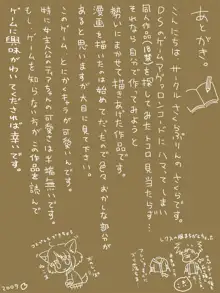 あとがき。
こんにちは、サークルさくらぷりんのさくらです。
DSのゲーム、アヴァロンコードにハマってしまい
同人作品は無いかと探してみたトコロ見当たらず…
それなら自分で作ってみようと
勢いにまかせて描きあげた作品です。
漫画を描いたのは始めてだったので色々おかしな部分が
あると思いますが大目に見て下さい。
このゲーム、とにかくキャラが可愛いです。
特に女主人公のティアちゃんの可愛さは半端無いです。
もし、ゲームを知らない方がこの作品を読んで
ゲームに興味がわいてくだされば幸いです。
2009